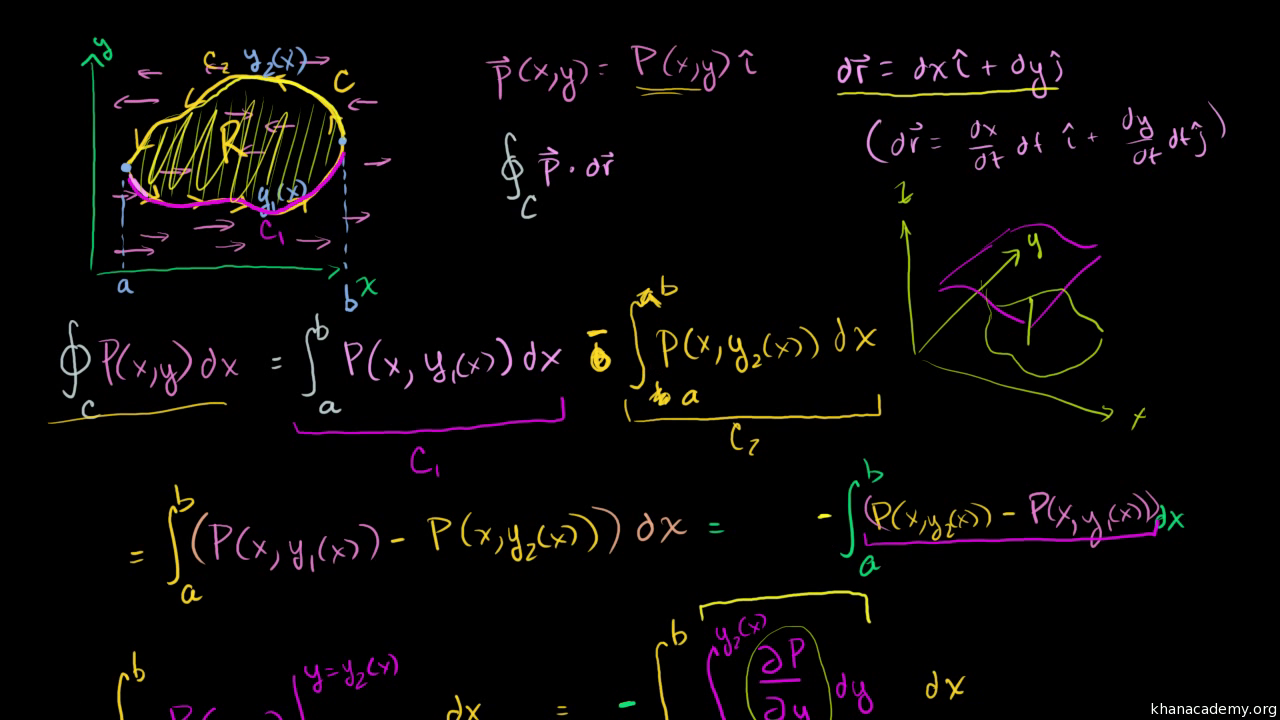 y
C₂ y₂(x)
C
R
y₁(x)
C₁
a
b x
P⃗(x,y) = P(x,y) î
dr⃗ = dx î + dy ĵ
(dr⃗ = dx/dt dt î + dy/dt dt ĵ)
∮_C P⃗ · dr⃗
z
y
x
∮_C P(x,y) dx = ∫_a^b P(x, y₁(x)) dx - ∫_a^b P(x, y₂(x)) dx
C₁
C₂
= ∫_a^b (P(x, y₁(x)) - P(x, y₂(x))) dx = - ∫_a^b (P(x, y₂(x)) - P(x, y₁(x))) dx
b y = y₂(x) dx = - ∫^b ∫^y₂(x) ∂P/∂y dy dx
khanacademy.org